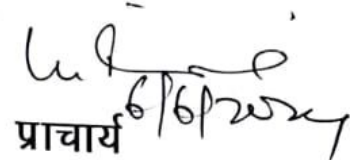 6/6/2024
प्राचार्य